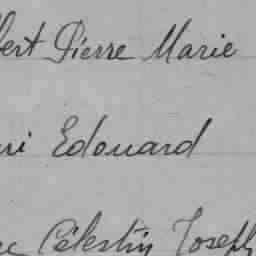 Pierre Marie
Edouard
Célestin Joseph